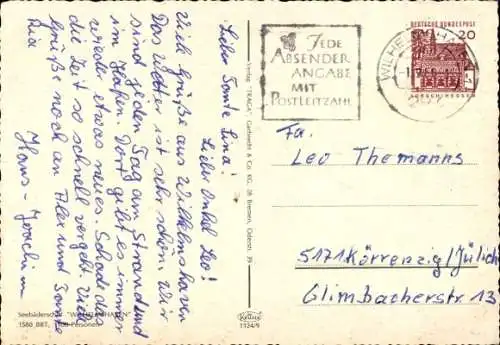 Liebe Tante Lina! Lieber Onkel Leo!
Viele Grüße aus Wilhelmshaven
Das Wetter ist sehr schön. Wir
sind jeden Tag am Strand und
im Hafen. Dort gibt es immer
wieder etwas neues. Schade das
die Zeit so schnell vergeht. Viele
Grüße noch an Alex und Tante
Ria
Hans-Joachim
Seebäderschiff "WILHELMSHAVEN"
1580 BRT, Personen
Verlag "TRAGA", Garbrecht & Co. KG, 28 Bremen, Osterstr. 39
Krüger
1324/9
JEDE
ABSENDER
ANGABE
MIT
POSTLEITZAHL
DEUTSCHE BUNDESPOST
20
LORSCH/HESSEN
Fa.
Leo Themanns
5171 Körrenzig/Jülich
Glimbacherstr 13